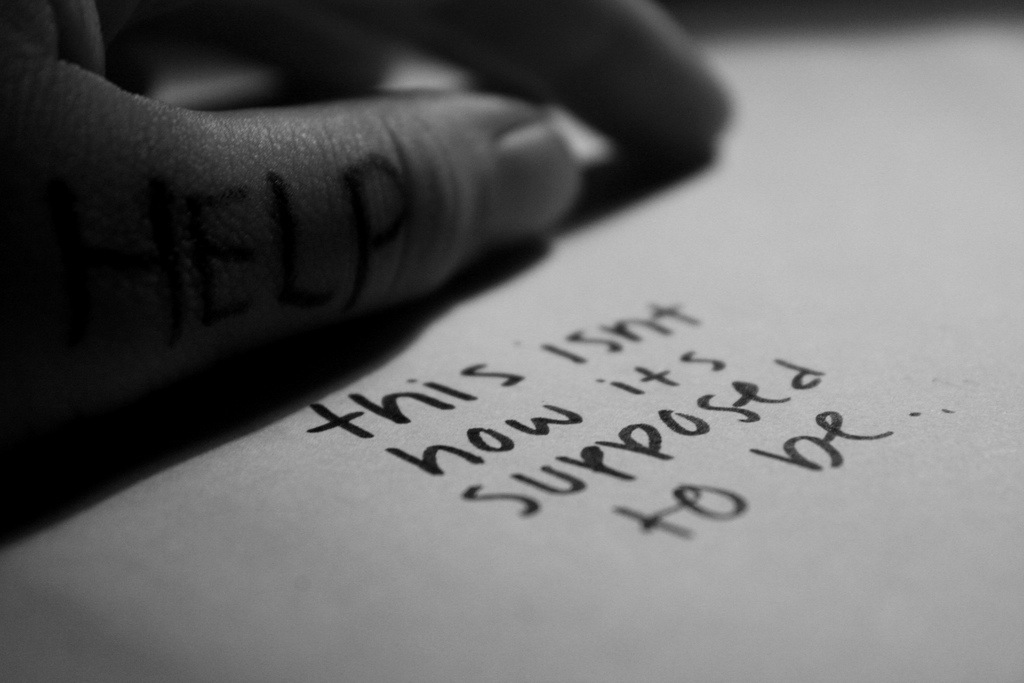 HELP
this isnt
how its
supposed
to be...